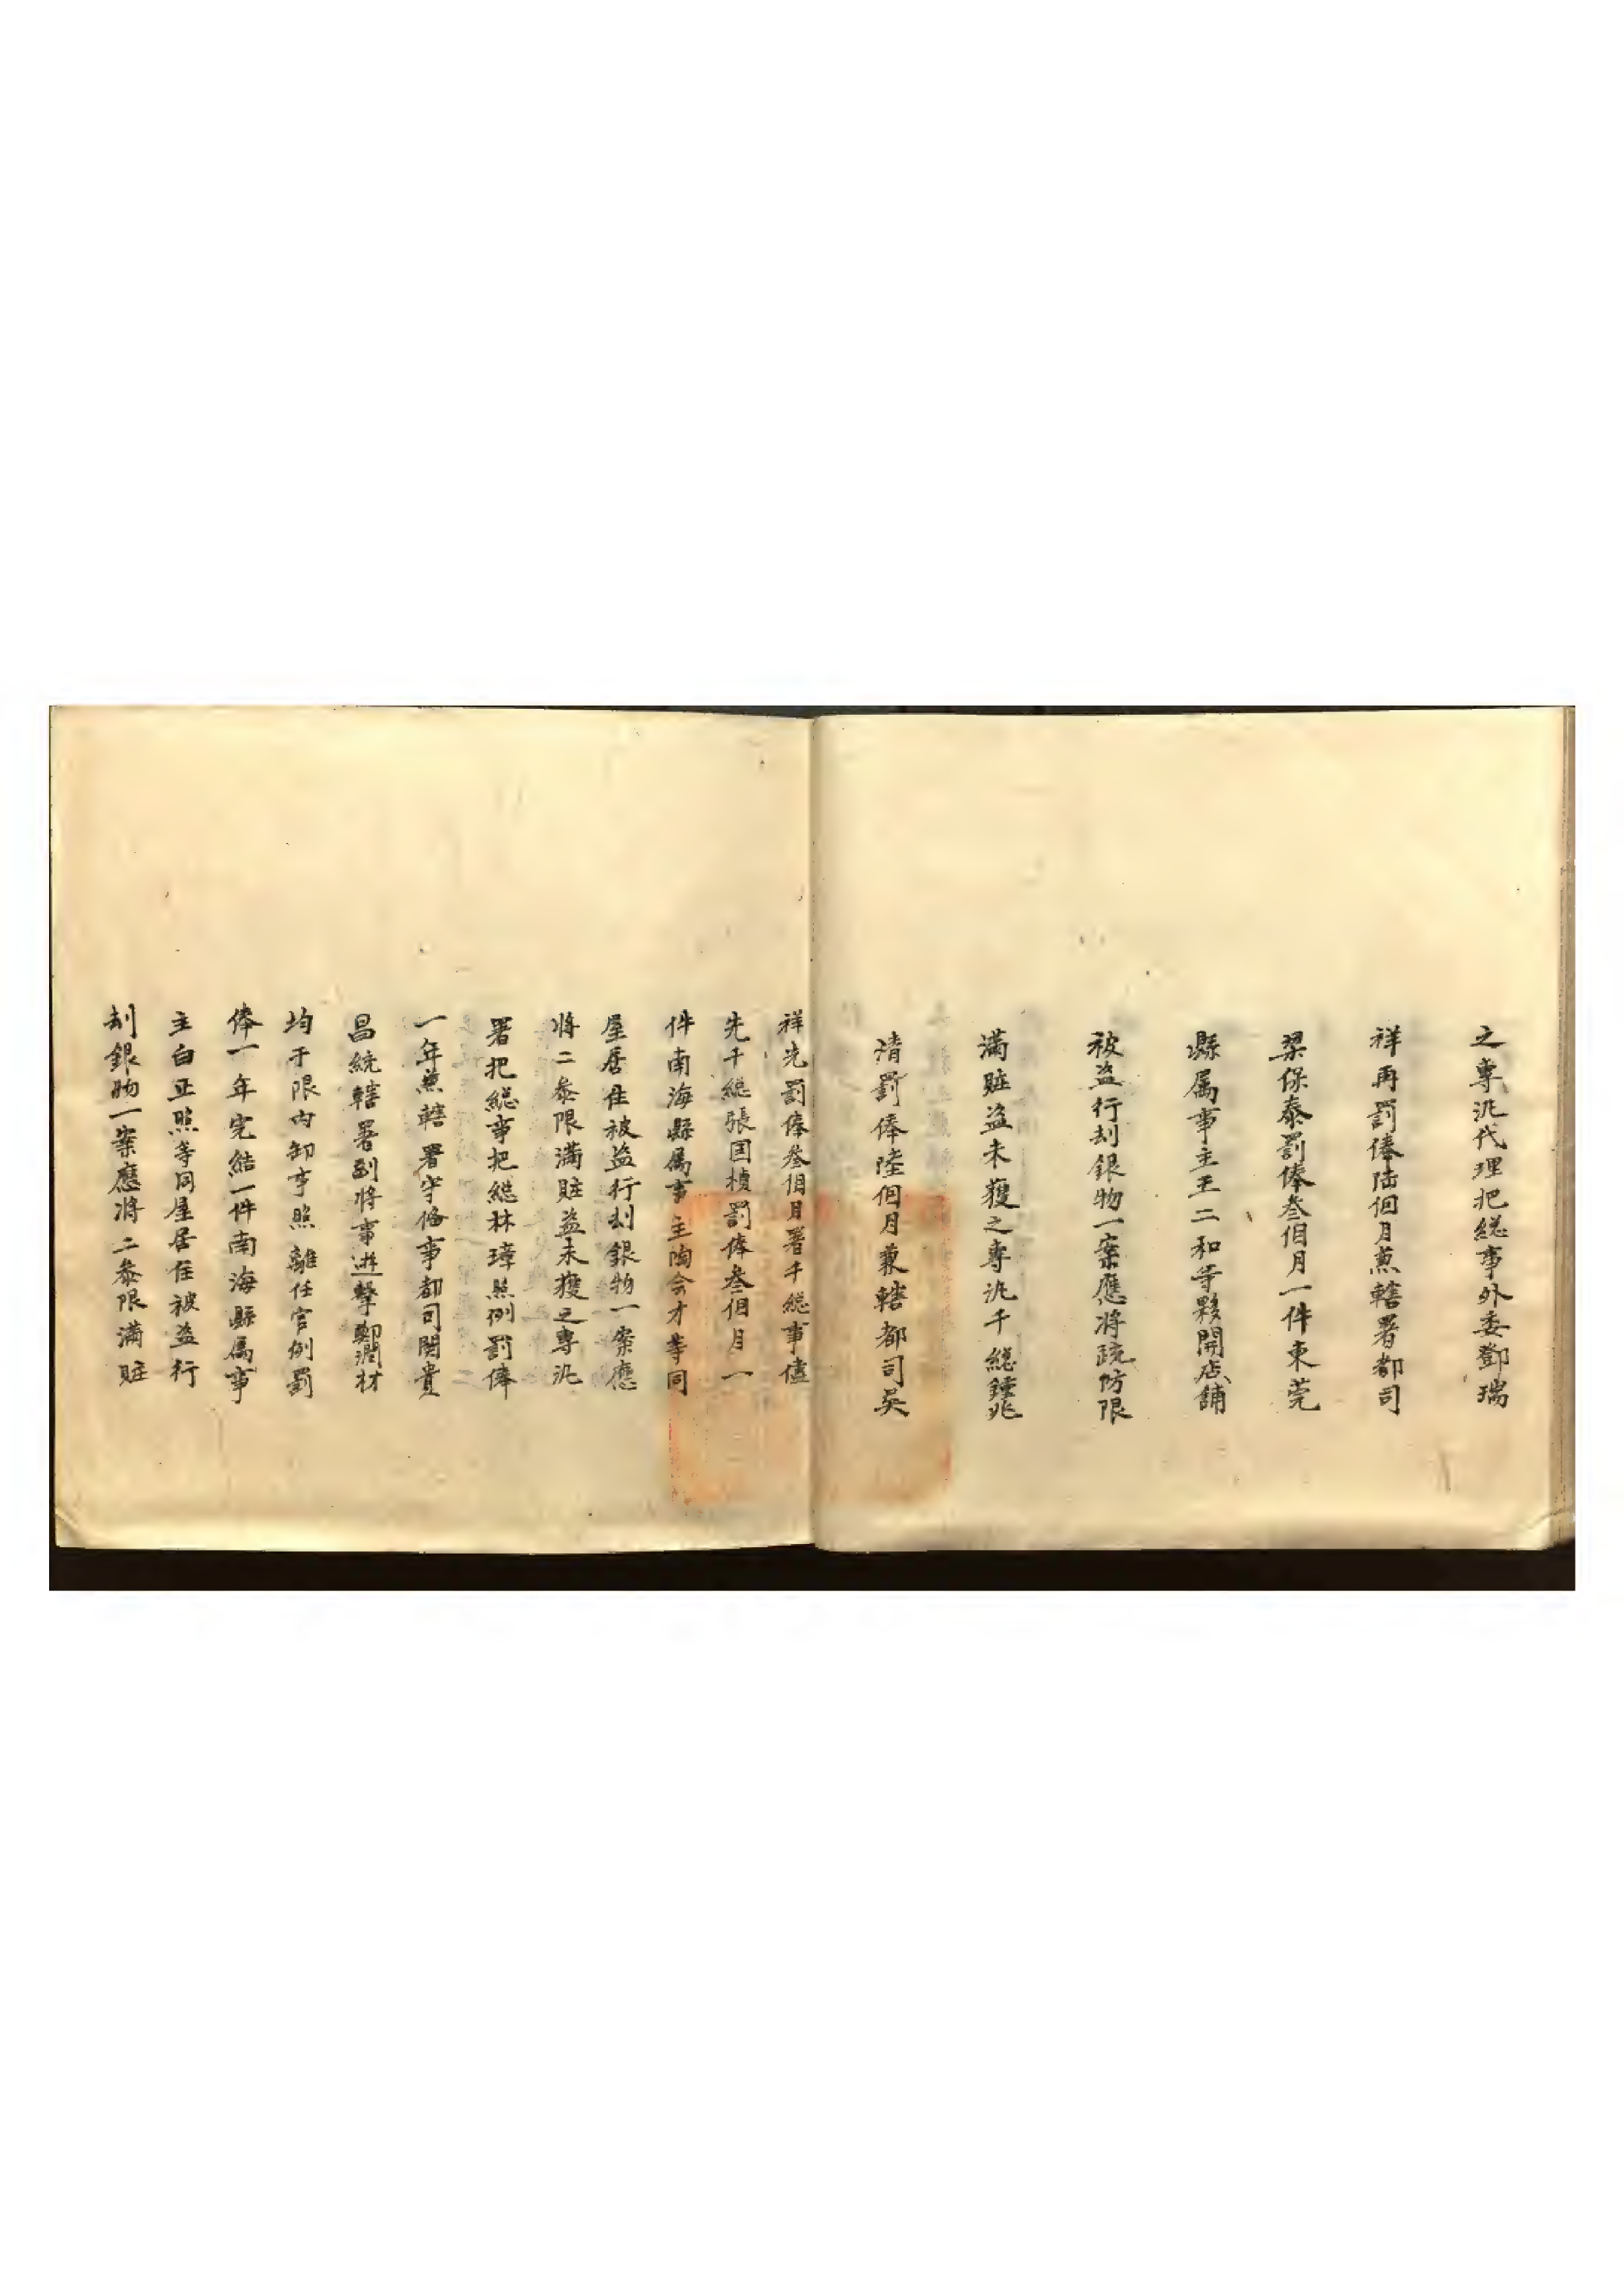 之專汛代理把総事外委鄧瑞
祥再罰俸陸個月兼轄署都司
梁保泰罰俸叁個月一件東莞
縣属事主王二和等夥開店舖
被盗行刦銀物一案應将疏防限
滿賍盗未獲之專汛千総鍾兆
清罰俸陸個月兼轄都司吳
祥先罰俸叁個月署千総事儘
先千総張国楨罰俸叁個月一
件南海縣属事主陶会才等同
屋居住被盗行刦銀物一案應
将二叅限滿賍盗未獲之專汛
署把総事把総林璋照例罰俸
一年兼轄署守俻事都司関貴
昌統轄署副将事遊擊鄭潤材
均于限内卸事照離任官例罰
俸一年完結一件南海縣属事
主白正照等同屋居住被盗行
刦銀物一案應将二叅限滿賍